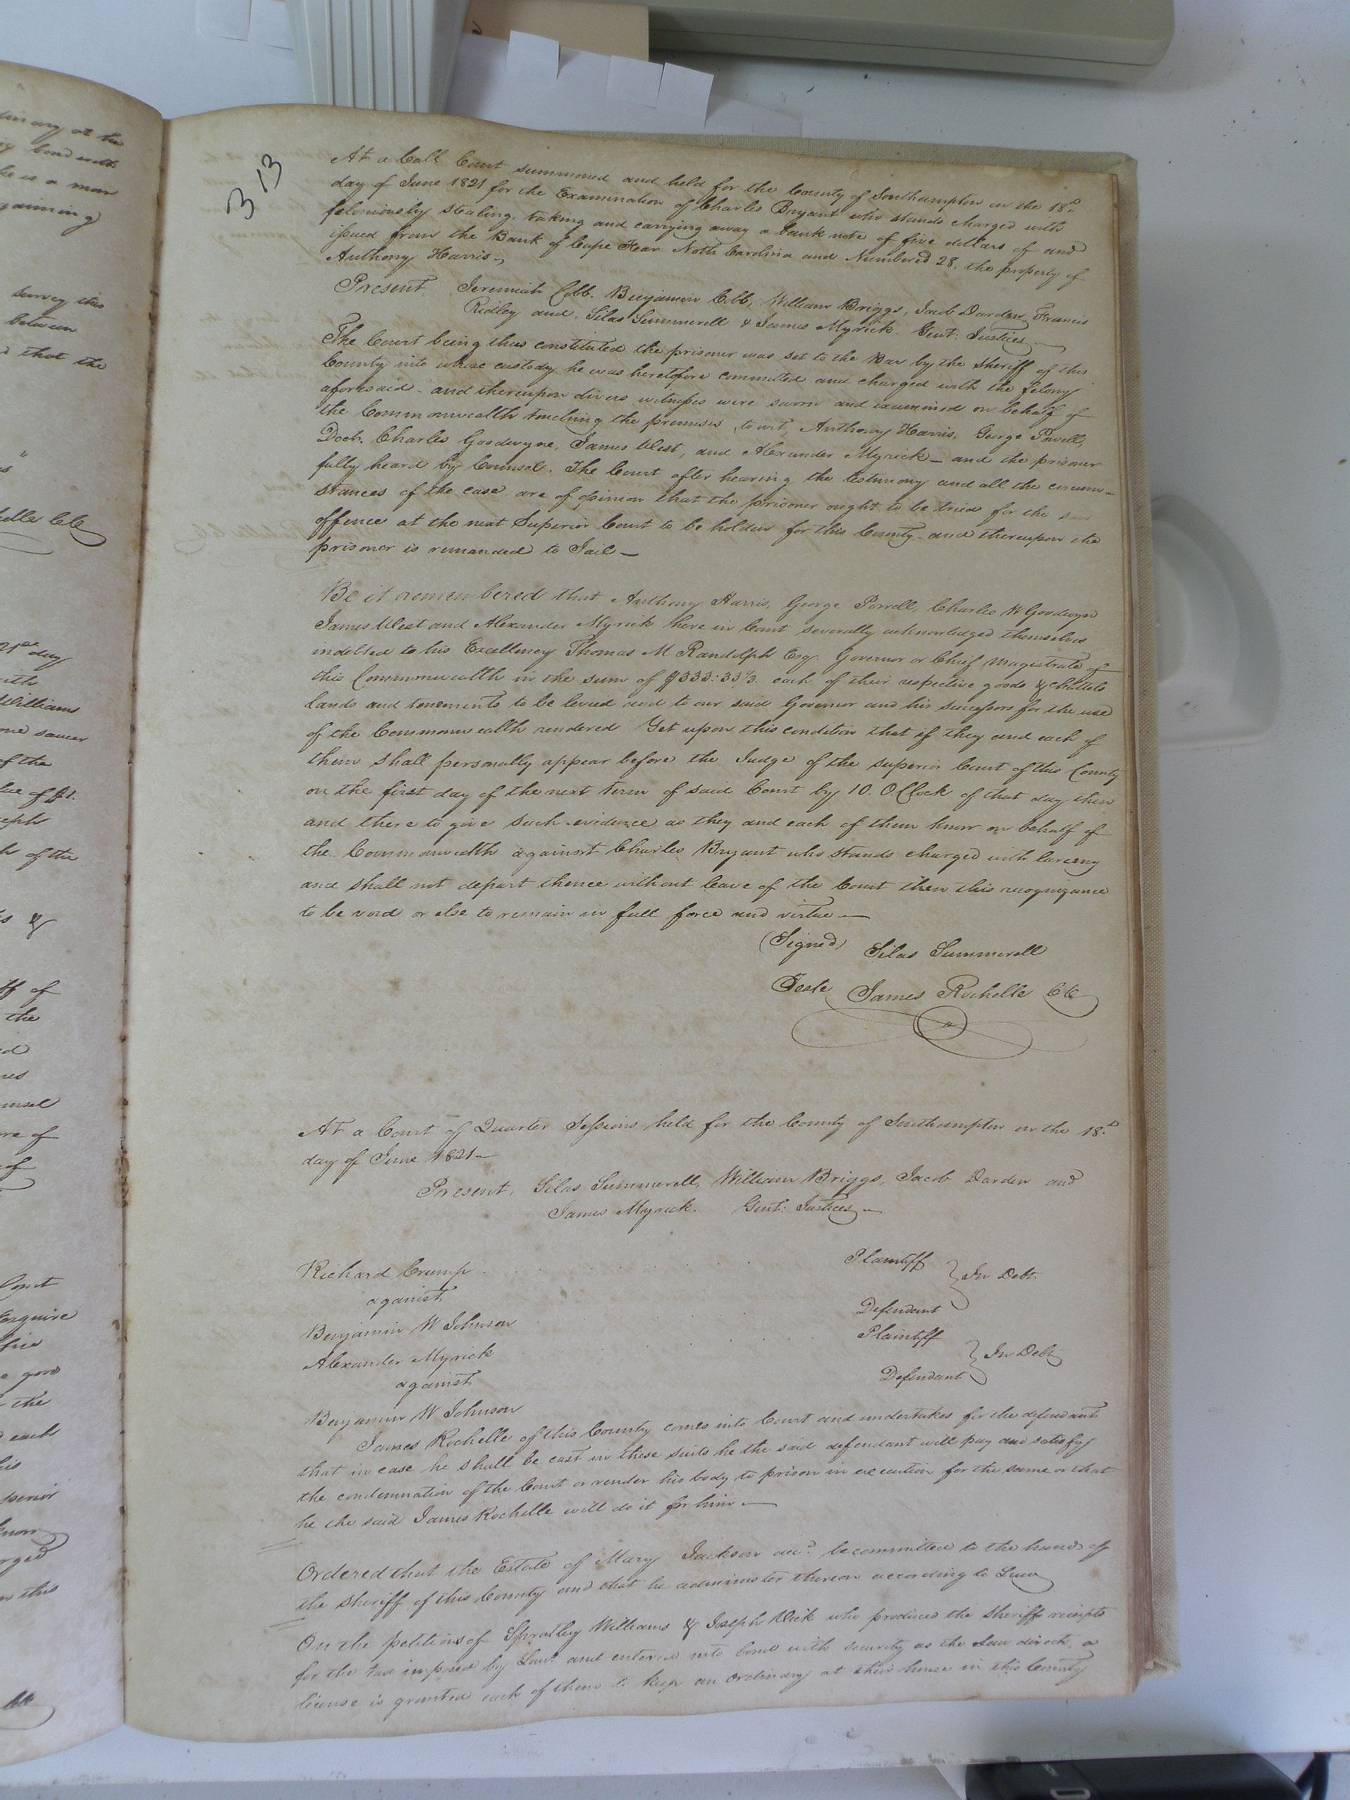 313
At a Call Court summoned and held for the County of Southampton on the 18th
day of June 1821 for the Examination of Charles Bryant who stands charged with
feloniously stealing, taking and carrying away a bank note of five dollars of and
issued from the Bank of Cape Fear North Carolina and Numbered 28, the property of
Anthony Harris
Present Jeremiah Cobb, Benjamin Cobb, William Briggs, Jacob Darden, Francis
Ridley and Silas Summerell & James Myrick Gent: Justices
The Court being thus constituted the prisoner was set to the Bar by the Sheriff of this
County into whose custody he was heretofore committed and charged with the felony
aforesaid - and thereupon divers witnesses were sworn and examined on behalf of
the Commonwealth touching the premises, towit, Anthony Harris, George Powell,
Doctr. Charles Goodwyne, James West, and Alexander Myrick — and the prisoner
fully heard by Counsel. The Court after hearing the testimony and all the circum-
stances of the case are of opinion that the prisoner ought to be tried for the said
offence at the next Superior Court to be holden for this County - and thereupon the
prisoner is remanded to Jail —
Be it remembered that Anthony Harris, George Powell, Charles W Goodwyn
James West and Alexander Myrick here in Court severally acknowledged themselves
indebted to his Excellency Thomas M Randolph Esq. Governor or Chief Magistrate of
this Commonwealth in the sum of $333:33⅓ each of their respective goods & chattels
lands and tenements to be levied and to our said Governor and his successors for the use
of the Commonwealth rendered Yet upon this condition that if they and each of
them shall personally appear before the Judge of the superior Court of this County
on the first day of the next term of said Court by 10. OClock of that day then
and there to give such evidence as they and each of them know on behalf of
the Commonwealth against Charles Bryant who stands charged with larceny
and shall not depart thence without leave of the Court then this recognizance
to be void or else to remain in full force and virtue —
(Signed) Silas Summerell
Teste James Rochelle CC
At a Court of Quarter Sessions held for the County of Southampton on the 18th
day of June 1821 —
Present, Silas Summerell, William Briggs, Jacob Darden and
James Myrick. Gent: Justices —
Richard Crump Plaintiff
against } In Debt.
Benjamin W Johnson Defendant
Alexander Myrick Plaintiff
against } In Debt
Benjamin W Johnson Defendant
James Rochelle of this County comes into Court and undertakes for the defendant
that in case he shall be cast in these suits he the said defendant will pay and satisfy
the condemnation of the Court or render his body to prison in execution for the same or that
he the said James Rochelle will do it for him —
Ordered that the Estate of Mary Jackson decd. be committed to the hands of
the Sheriff of this County and that he administer thereon according to Law
On the petitions of Spratley Williams & Joseph Dick who produced the Sheriff receipts
for the tax imposed by Law and entered into bond with security as the Law directs, a
license is granted each of them to keep an ordinary at their house in this County